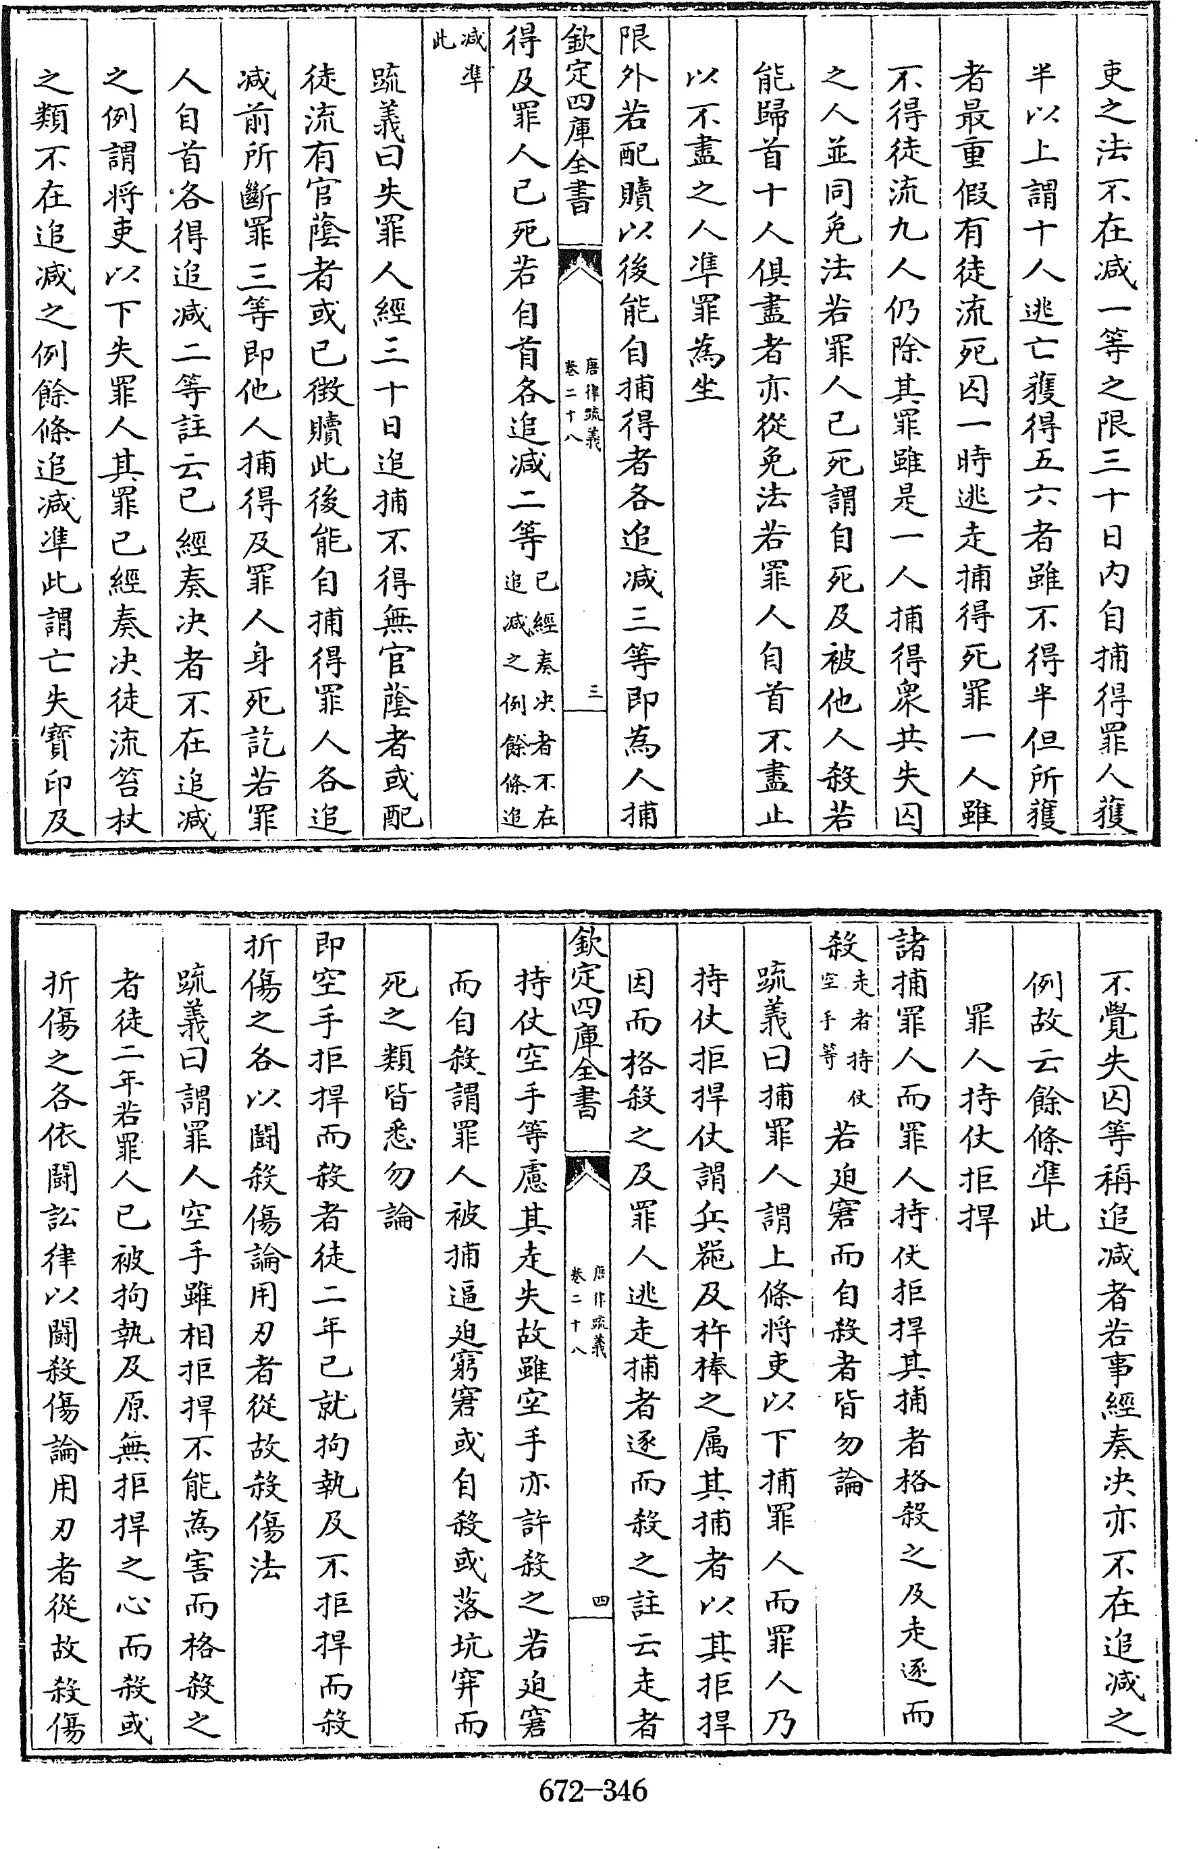 吏之法不在减一等之限三十日内自捕得罪人獲
半以上謂十人逃亡獲得五六者雖不得半但所獲
者最重假有徒流死囚一時逃走捕得死罪一人雖
不得徒流九人仍除其罪雖是一人捕得衆共失囚
之人並同免法若罪人已死謂自死及被他人殺若
能歸首十人俱盡者亦從免法若罪人自首不盡止
以不盡之人準罪為坐
限外若配贖以後能自捕得者各追减三等即為人捕
欽定四庫全書
唐律疏義
卷二十八
三
得及罪人已死若自首各追减二等已經奏决者不在
追减之例餘條追
减準
此
疏義曰失罪人經三十日追捕不得無官蔭者或配
徒流有官蔭者或已徴贖此後能自捕得罪人各追
减前所斷罪三等即他人捕得及罪人身死訖若罪
人自首各得追减二等註云已經奏决者不在追减
之例謂將吏以下失罪人其罪已經奏决徒流笞杖
之類不在追减之例餘條追减準此謂亡失寶印及
不覺失囚等稱追减者若事經奏决亦不在追减之
例故云餘條準此
罪人持仗拒捍
諸捕罪人而罪人持仗拒捍其捕者格殺之及走逐而
殺走者持仗
空手等
若迫窘而自殺者皆勿論
疏義曰捕罪人謂上條將吏以下捕罪人而罪人乃
持仗拒捍仗謂兵器及杵棒之属其捕者以其拒捍
因而格殺之及罪人逃走捕者逐而殺之註云走者
欽定四庫全書
唐律疏義
卷二十八
四
持仗空手等慮其走失故雖空手亦許殺之若迫窘
而自殺謂罪人被捕逼迫窮窘或自殺或落坑穽而
死之類皆悉勿論
即空手拒捍而殺者徒二年已就拘執及不拒捍而殺
折傷之各以鬭殺傷論用刃者從故殺傷法
疏義曰謂罪人空手雖相拒捍不能為害而格殺之
者徒二年若罪人已被拘執及原無拒捍之心而殺或
折傷之各依鬭訟律以鬭殺傷論用刃者從故殺傷
672-346